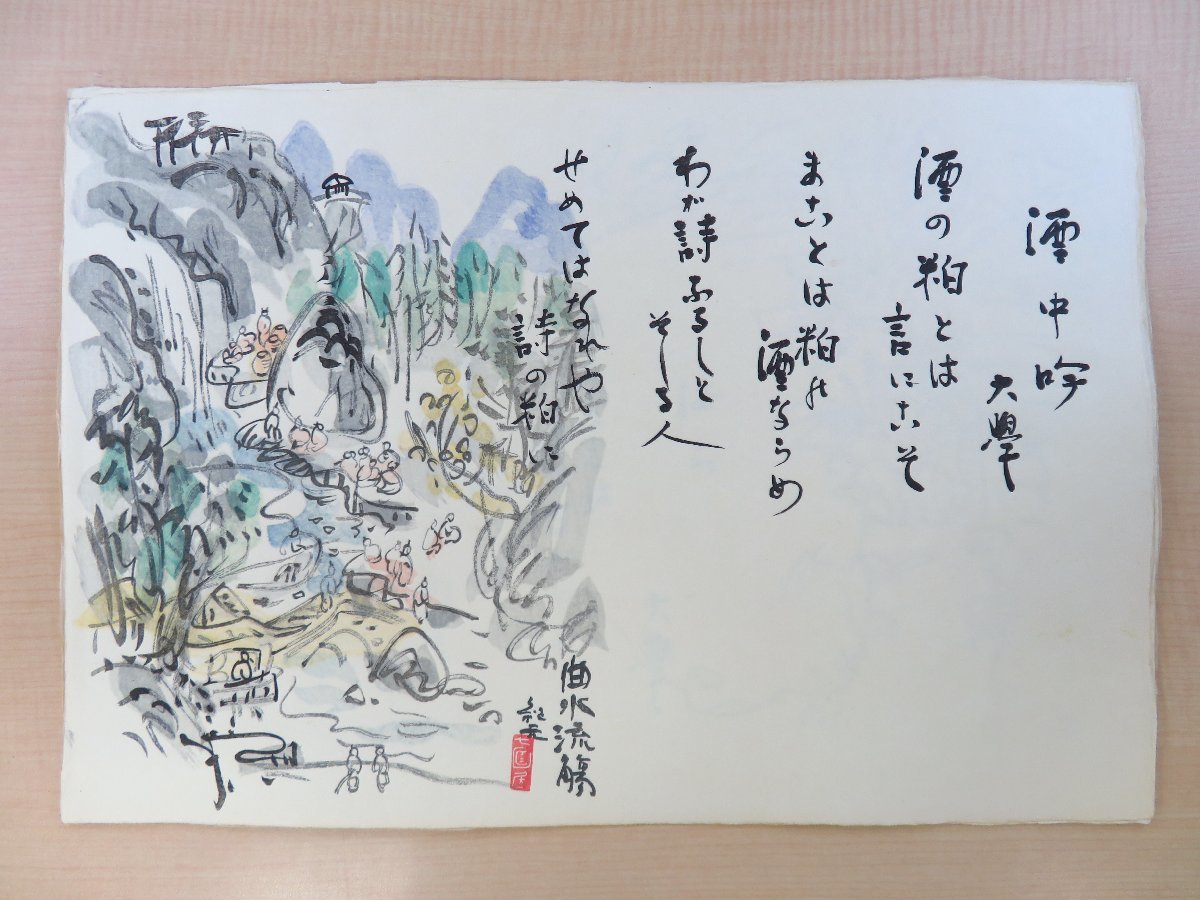 酒中吟
大學
酒の粕とは
言にこそ
まことは粕の
酒ならめ
わが詩ふるしと
そしる人
せめてはなれや
詩の粕に
曲水流觴